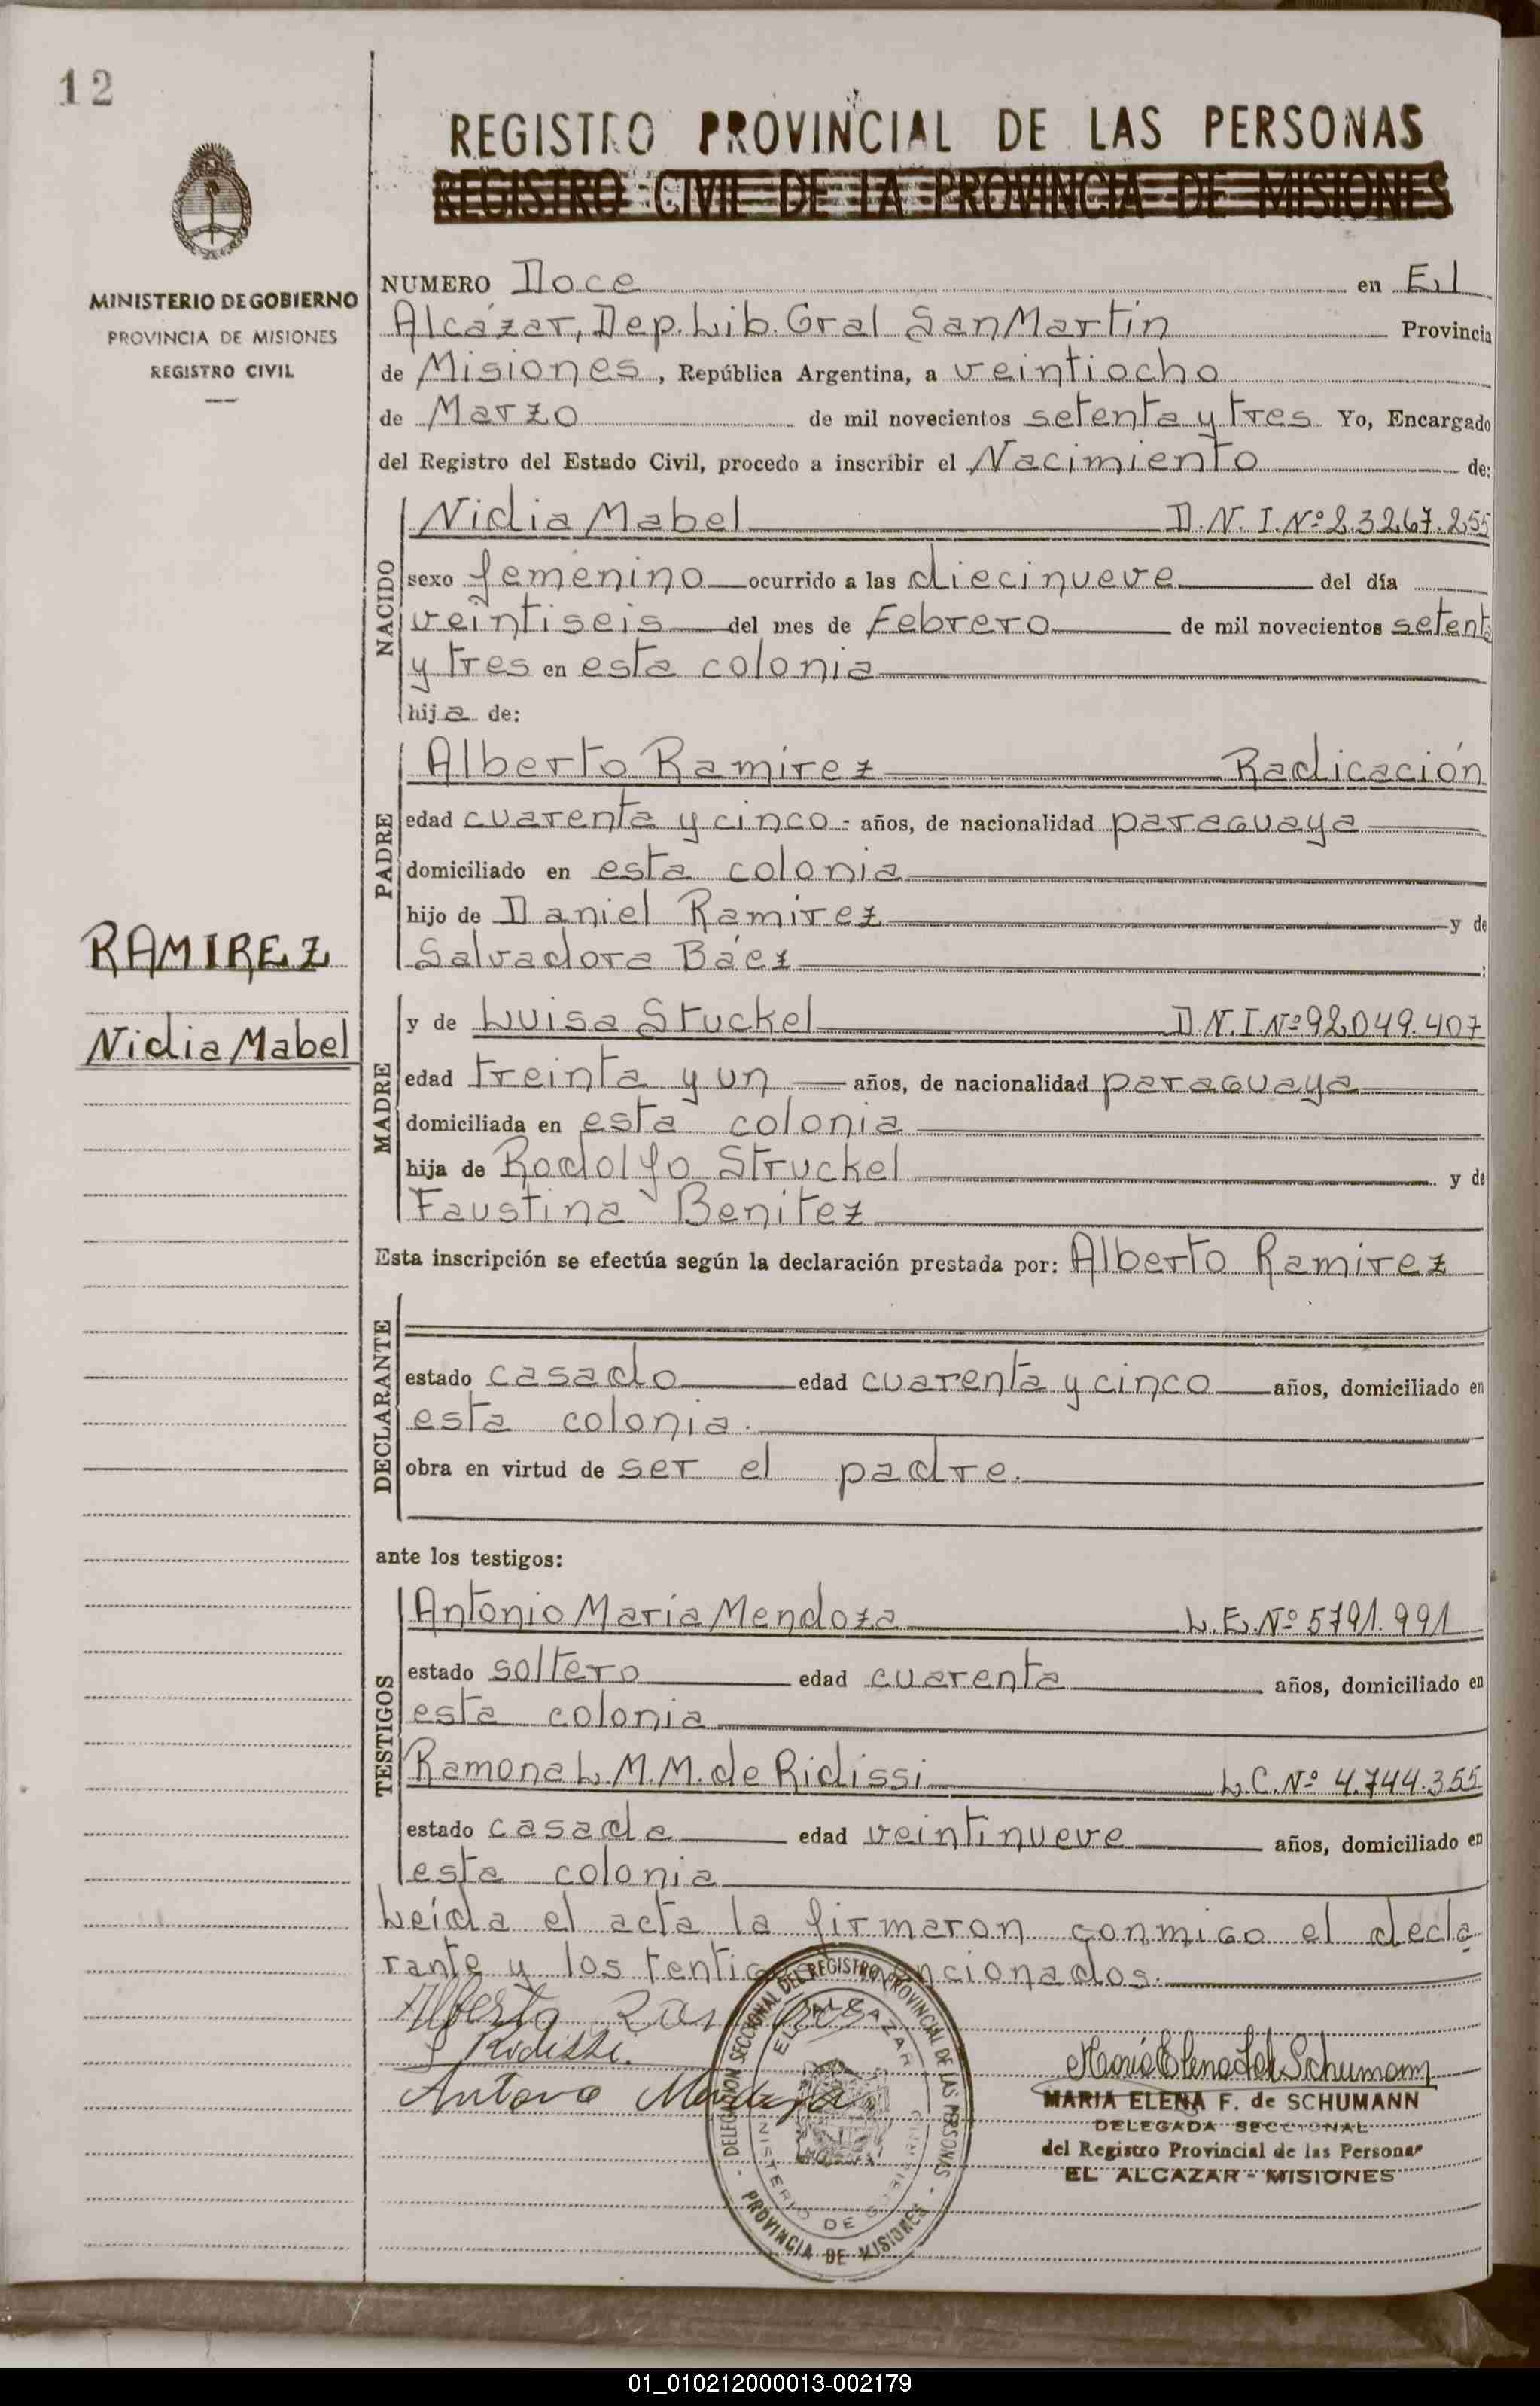 12
REGISTRO PROVINCIAL DE LAS PERSONAS
REGISTRO CIVIL DE LA PROVINCIA DE MISIONES
MINISTERIO DE GOBIERNO
PROVINCIA DE MISIONES
REGISTRO CIVIL
NUMERO Doce en El
Alcázar, Dep. Lib. Gral San Martín Provincia
de Misiones, República Argentina, a veintiocho
de Marzo de mil novecientos setenta y tres Yo, Encargado
del Registro del Estado Civil, procedo a inscribir el Nacimiento de:
NACIDO
Nidia Mabel D.N.I.Nº 23.267.255
sexo femenino ocurrido a las diecinueve del día
veintiseis del mes de Febrero de mil novecientos setenta
y tres en esta colonia
hija de:
PADRE
Alberto Ramírez Radicación
edad cuarenta y cinco - años, de nacionalidad paraguaya
domiciliado en esta colonia
hijo de Daniel Ramírez y de
Salvadora Báez
RAMIREZ
Nidia Mabel
MADRE
y de Luisa Stuckel D.N.I.Nº 92.049.407
edad treinta y un años, de nacionalidad paraguaya
domiciliada en esta colonia
hija de Rodolfo Struckel y de
Faustina Benitez
Esta inscripción se efectúa según la declaración prestada por: Alberto Ramírez
DECLARANTE
estado casado edad cuarenta y cinco años, domiciliado en
esta colonia.
obra en virtud de ser el padre.
ante los testigos:
TESTIGOS
Antonio María Mendoza L.E.Nº 5791.991
estado soltero edad cuarenta años, domiciliado en
esta colonia
Ramona L. M. M. de Ridissi L.C.Nº 4.744.355
estado casada edad veintinueve años, domiciliado en
esta colonia
Leída el acta la firmaron conmigo el decla
rante y los mencionados.
Alberto
Ridissi.
Antonio Mendoza
DELEGACION SECCIONAL DEL REGISTRO PROVINCIAL DE LAS PERSONAS
EL ALCAZAR
MINISTERIO DE GOBIERNO
PROVINCIA DE MISIONES
María Elena F. de Schumann
MARIA ELENA F. de SCHUMANN
DELEGADA SECCIONAL
del Registro Provincial de las Personas
EL ALCAZAR - MISIONES
01_010212000013-002179